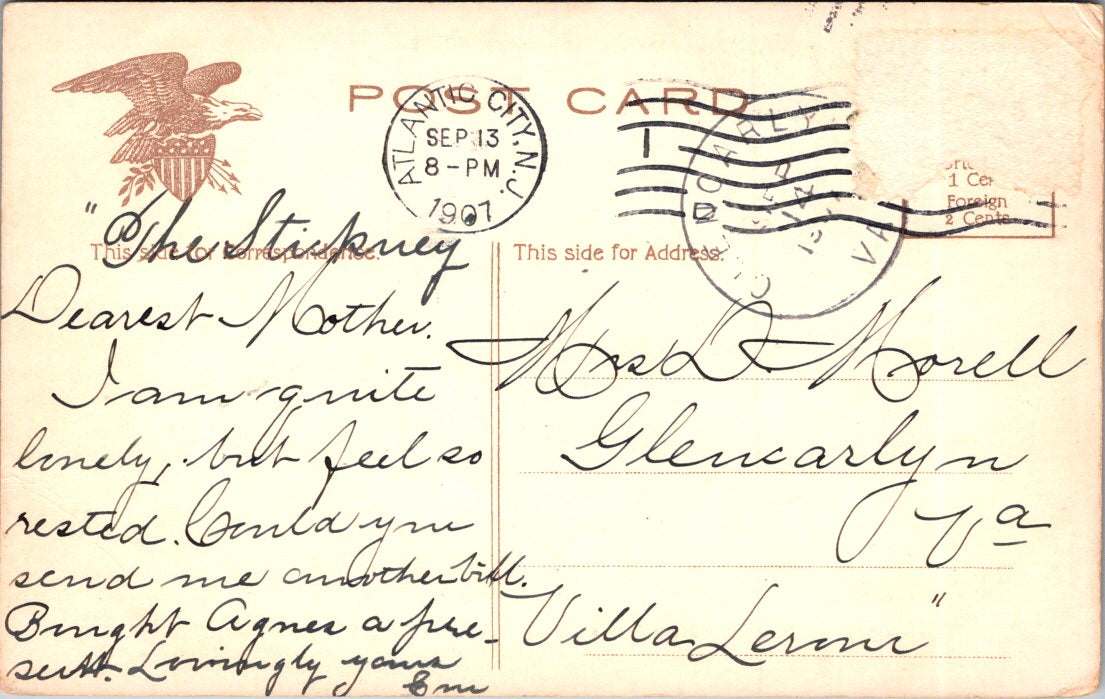 POST CARD
ATLANTIC CITY, N.J.
SEP 13
8-PM
1907
GLENCARLYN
SEP
14
VA
1 Ce
Foreign
2 Cents
This side for Correspondence.
This side for Address.
"The Stickney
Dearest Mother.
I am quite
lonely, but feel so
rested. Could you
send me another bill.
Bought Agnes a pre-
sent. Lovingly yours
Em
Mrs L Morell
Glencarlyn
Va
"Villa